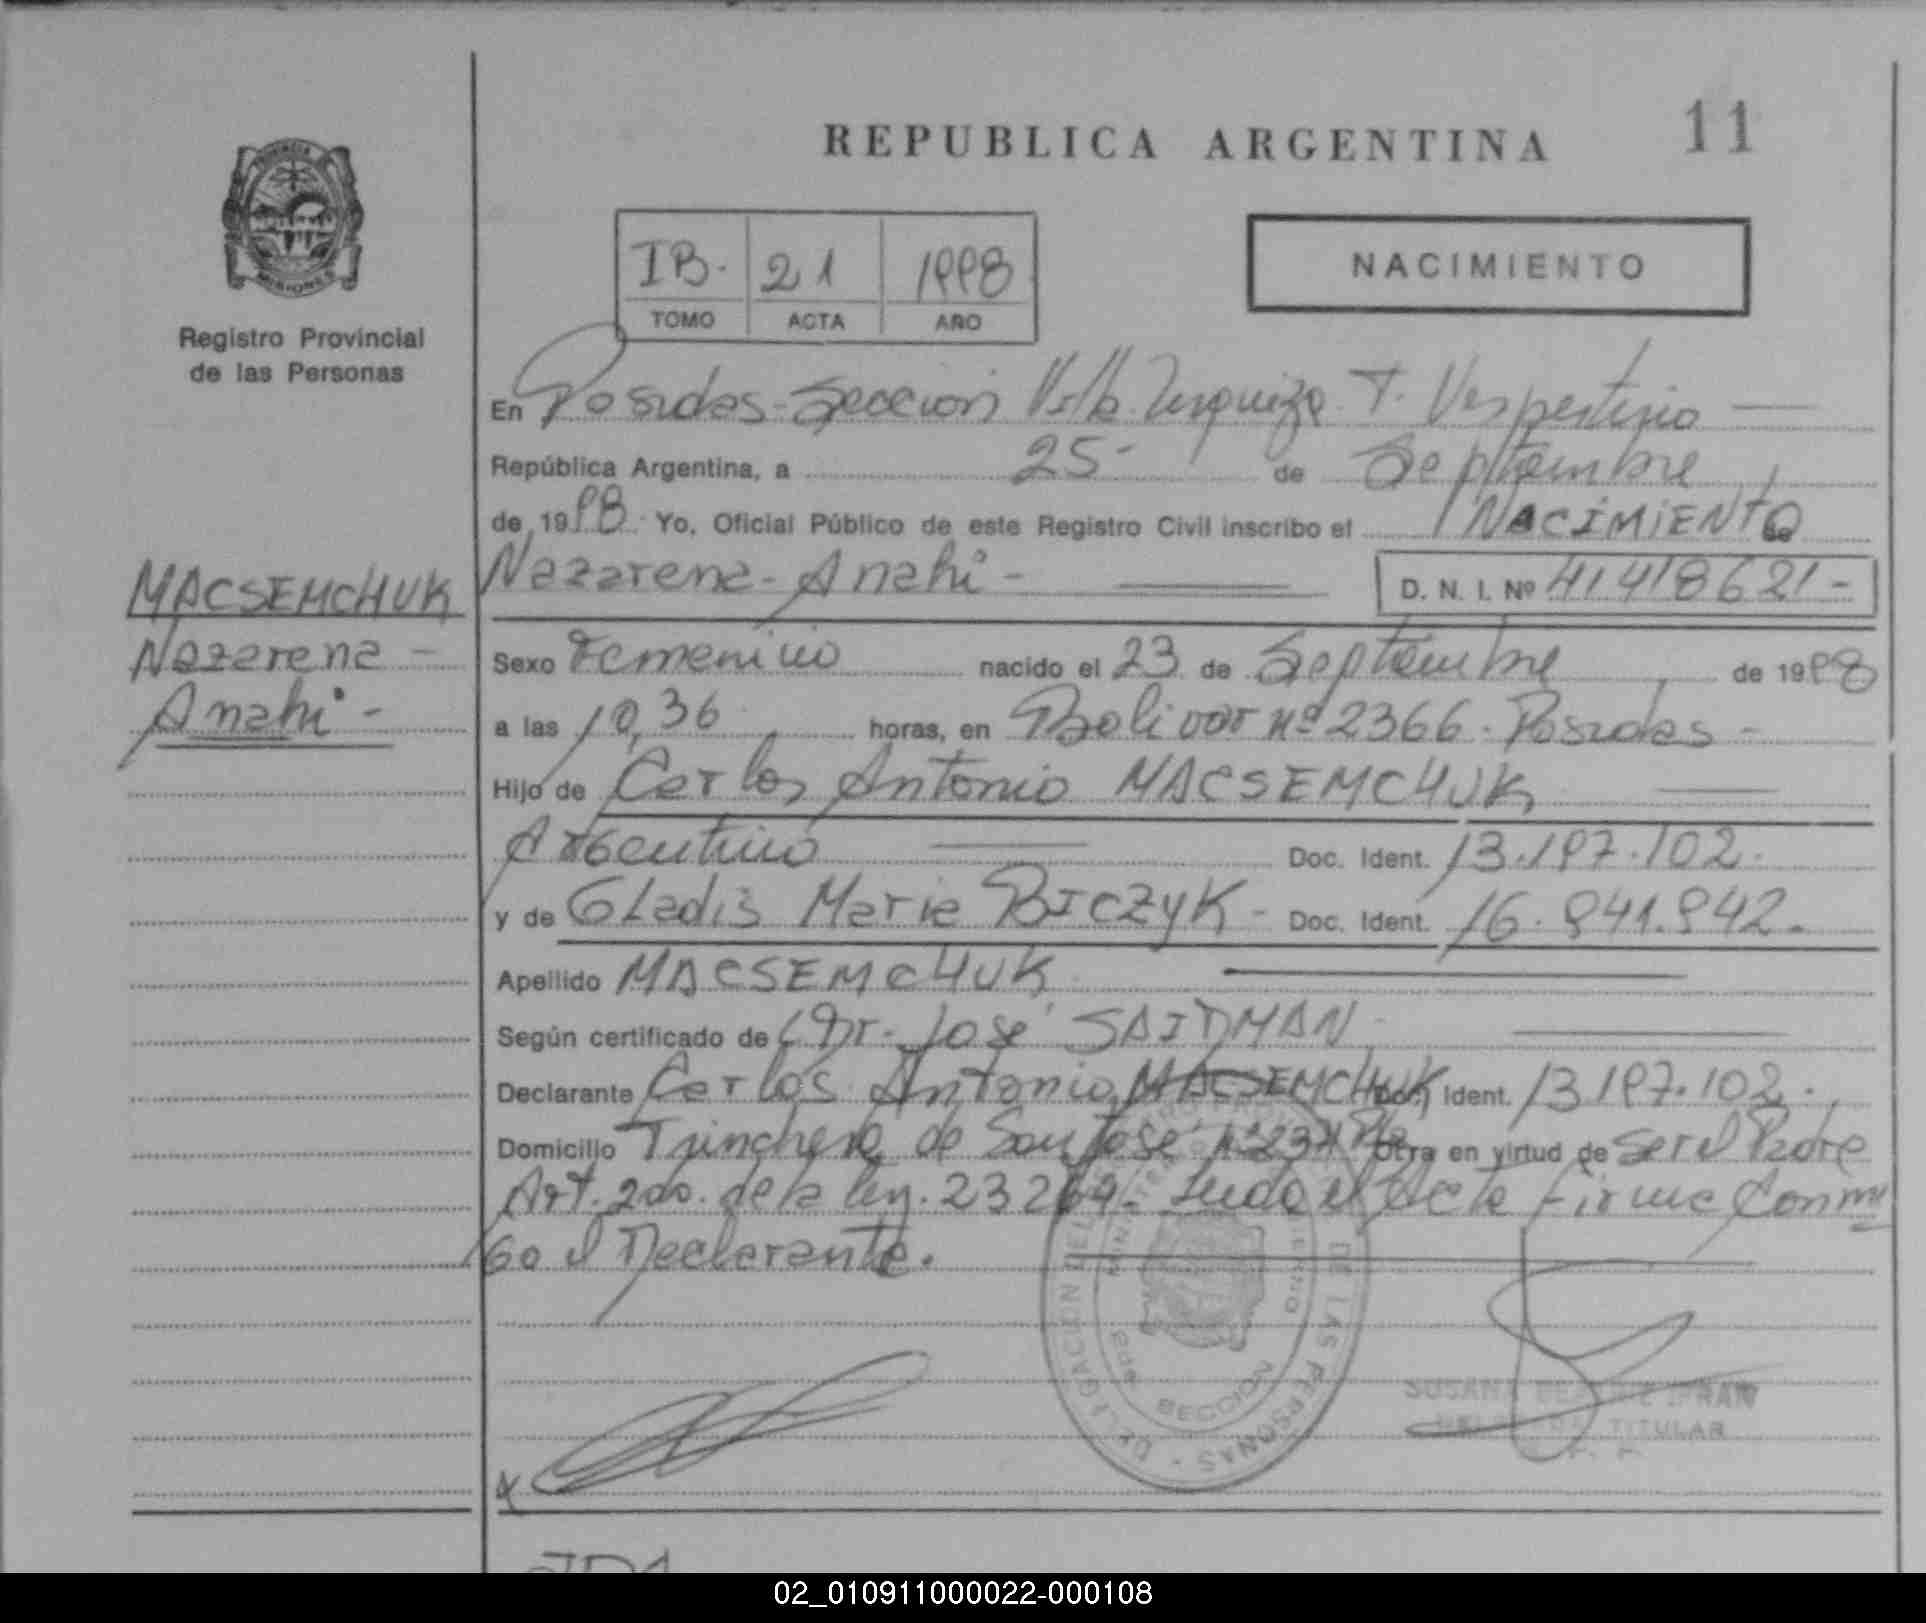 11
REPUBLICA ARGENTINA
PROVINCIA DE
MISIONES
Registro Provincial
de las Personas
NACIMIENTO
IB. 21 1998
TOMO ACTA AÑO
En Posadas-Sección Villa Urquiza T. Vespertino
República Argentina, a 25- de Septiembre
de 1998 Yo, Oficial Público de este Registro Civil inscribo el NACIMIENTO de
Nazarena-Anahi- D. N. I. Nº 41418621-
MACSEMCHUK
Nazarena -
Anahi-
Sexo Femenino nacido el 23 de Septiembre de 1998
a las 10,36 horas, en Bolivar nº 2366. Posadas-
Hijo de Carlos Antonio MACSEMCHUK
Argentino Doc. Ident. 13.197.102.
y de GLadis Maria BICZYK- Doc. Ident. 16.841.842.
Apellido MACSEMCHUK
Según certificado de Dr. José SAIDMAN
Declarante Carlos Antonio MACSEMCHUK Doc. Ident. 13197.102.
Domicilio Trinchera de San José nº 237 Otra en virtud de ser el Padre
Art. 2do. de la ley. 23264- Leida el Acta Firma Conmi
Go el Declarante.
DELEGACION DEL REGISTRO DE LAS PERSONAS
SECCION
SUSANA BEATRIZ
TITULAR
02_010911000022-000108